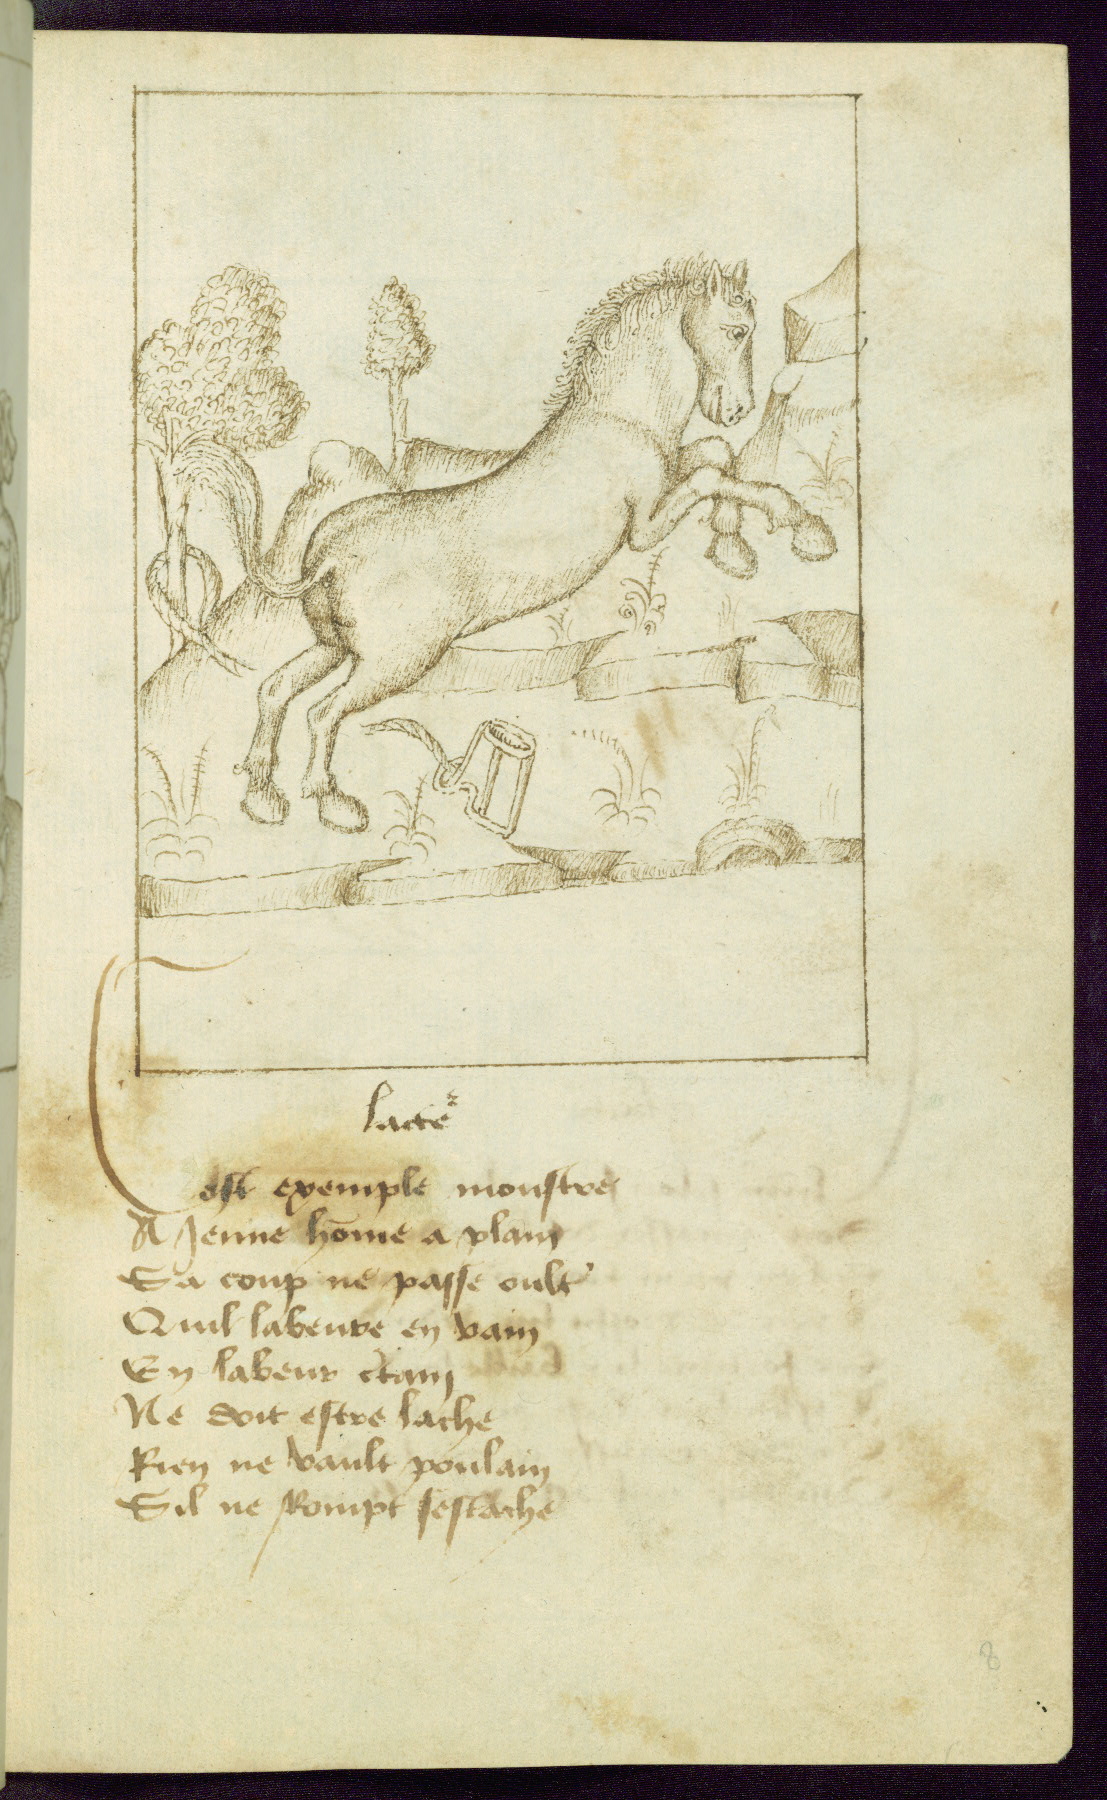 Lacteᷣ
Cest exemple monstre
A Jenne hōme a plain
Sa coup ne passe oultʾ
Quil labeure en vain
En labeur c̃tain
Ne doit estre lache
Rien ne vault poulain
Sil ne Rompt sestache
8